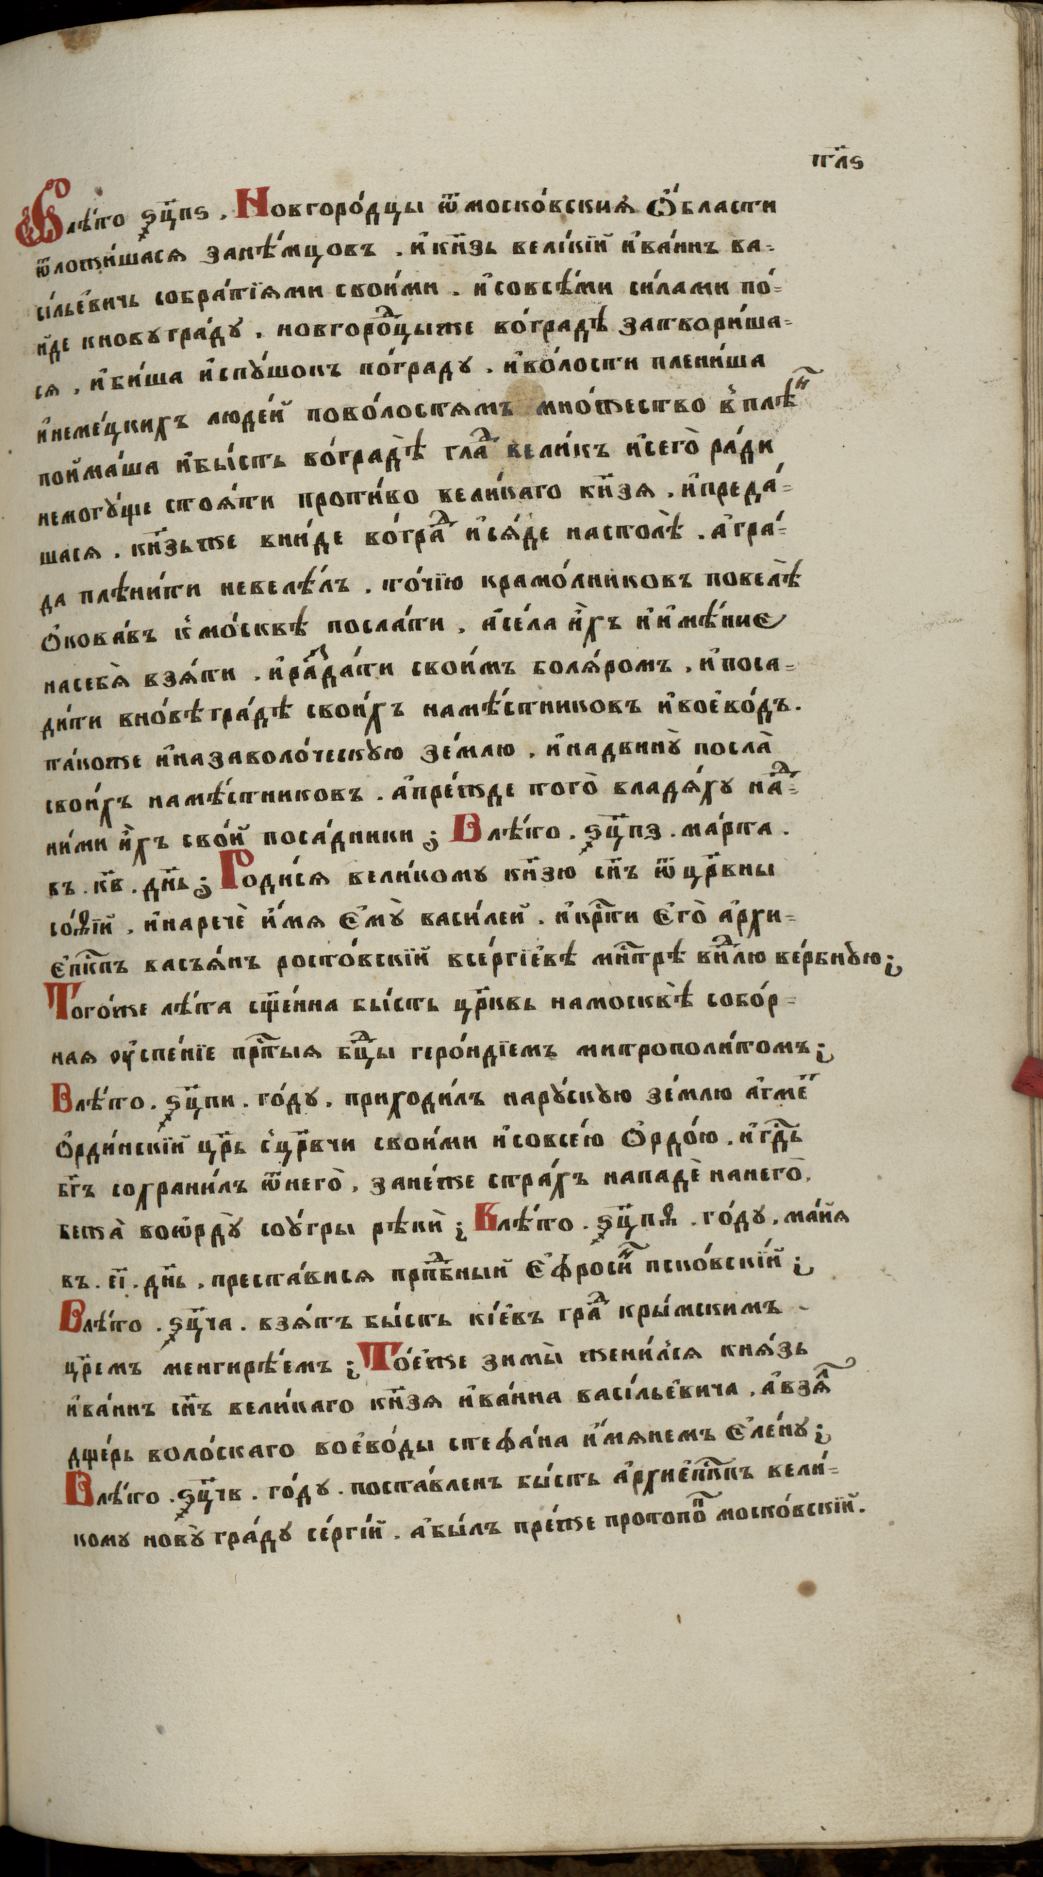 тл҃ѕ
Влѣ́то ҂ѕц҃пѕ. Новгоро́дцы ѿмоско́вскиѧ ѻ҆́бласти
ѿложи́шасѧ занѣ́мцовъ. и҆кн҃зь вели́кїй и҆ва́ннъ ва-
сі́льевичь собра́тїѧми свои́ми. и҆совсѣ́ми си́лами по́-
йде кновугра́дꋋ. новгоро́дцыже во́градѣ затвори́ша-
сѧ. и҆би́ша и҆спꋋ́шокъ по́градꋋ. и҆во́лости плени́ша
и҆неме́цкихъ люде́й пово́лостѧмъ мно́жество в̾плѣ́н
пойма́ша и҆бы́сть во́градѣ̀ гла́д вели́къ и҆сего̀ ра́ди
немогꋋ́ще стоѧ́ти проти́во вели́каго кн҃зѧ. и҆преда́-
шасѧ. кн҃зьже вни́де во́гра́д и҆сѧ́де настолѣ̀. а҆гра́-
да плѣни́ти невелѣ́лъ. то́чїю крамо́лниковъ повелѣ̀
ѻ҆кова́въ к̾мо́сквѣ посла́ти. а҆се́ла и҆̀хъ и҆и҆мѣ́ние
насебѧ̀ взѧ́ти. и҆разда́ти свои́мъ болѧ́ромъ. и҆поса-
ди́ти вно́вѣгра́дѣ свои́хъ намѣ́стниковъ и҆воево́дъ.
та́коже и҆назаволо́ческꋋю зе́млю. и҆надвинꋋ̀ посла̀
свои́хъ намѣ́стниковъ. а҆пре́жде того̀ владѧ́хꋋ на́д-
ни́ми и҆̀хъ сво́й поса́дники; Влѣ́то. ҂ѕц҃пз. ма́рта.
въ. к҃в. дн҃ь; Роди́сѧ вели́комꋋ кн҃зю сн҃ъ ѿцр҃вны
со́ѳїй. и҆наречѐ и҆́мѧ є҆мꋋ̀ васи́лей. и҆крⷭ҇ти є҆го̀ а҆рхи-
є҆пⷭ҇кпъ васъѧ́нъ росто́вскїй всергі́евѣ мнⷭ҇трѣ внⷣлю ве́рбнꋋю;
Того́же лѣ́та сщ҃е́нна бы́сть цр҃ковь намосквѣ̀ собо́р-
наѧ ᲂу҆спе́нїе прⷭ҇тыѧ бц҃ы геро́ндїемъ митрополи́томъ;
Влѣ́то. ҂ѕц҃пи. го́дꋋ. приходи́лъ нарꋋ́скꋋю зе́млю а҆хме́т
ѻ҆рди́нскїй цр҃ь с̾цр҃вчи свои́ми и҆совсе́ю ѻ҆рдо́ю. и҆гдⷭ҇ь
бг҃ъ сохрани́лъ ѿнего̀, зане́же стра́хъ нападѐ нанего̀,
бежа̀ воѡрдꋋ̀ соу́гры рѣки̾; Влѣ́то. ҂ѕц҃пѳ. го́дꋋ. ма́йѧ
въ. є҃і. дн҃ь. преста́висѧ прпⷣбный є҆фроси́н пско́вскїй;
Влѣ́то. ҂ѕц҃ча. взѧ́тъ бы́сть кі́евъ гра́д кры́мскимъ
цр҃е́мъ менгирѣ́емъ; То́еже зимы̀ жени́лсѧ кнѧ́зь
и҆ва́ннъ сн҃ъ вели́каго кн҃зѧ и҆ва́нна васі́льевича. а҆взѧ́л
дще́рь воло́скаго воево́ды стефа́на и҆́мѧнемъ є҆ле́нꋋ;
Влѣ́то. ҂ѕц҃чв. го́дꋋ. поста́вленъ бы́сть а҆рхие҆пⷭ҇кпъ вели́-
комꋋ новꋋ̀гра́дꋋ се́ргїй. а҆бы́лъ пре́же протопо́п моско́вскїй.